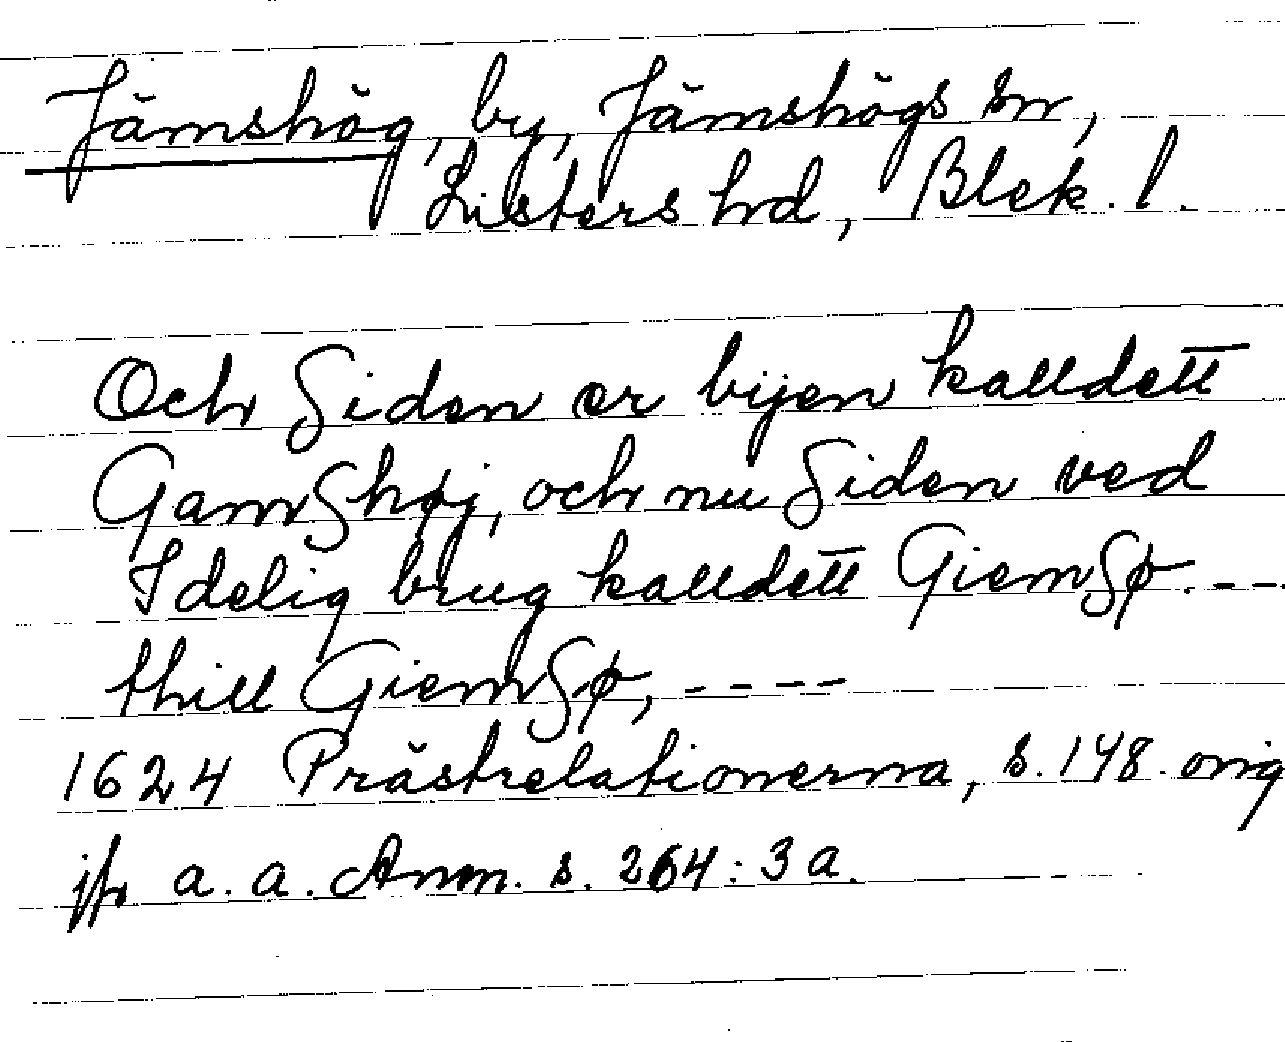 Jämshög, by, Jämshögs sn,
Listers hd, Blek. l.
Och Siden er bijen kalldett
GamShøj, och nu Siden ved
Idelig brug kalldett GiemSø. ---
thill GiemSø, ----
1624 Prästrelationerna, s. 148. orig
jfr a. a. Anm. s. 264: 3 a.